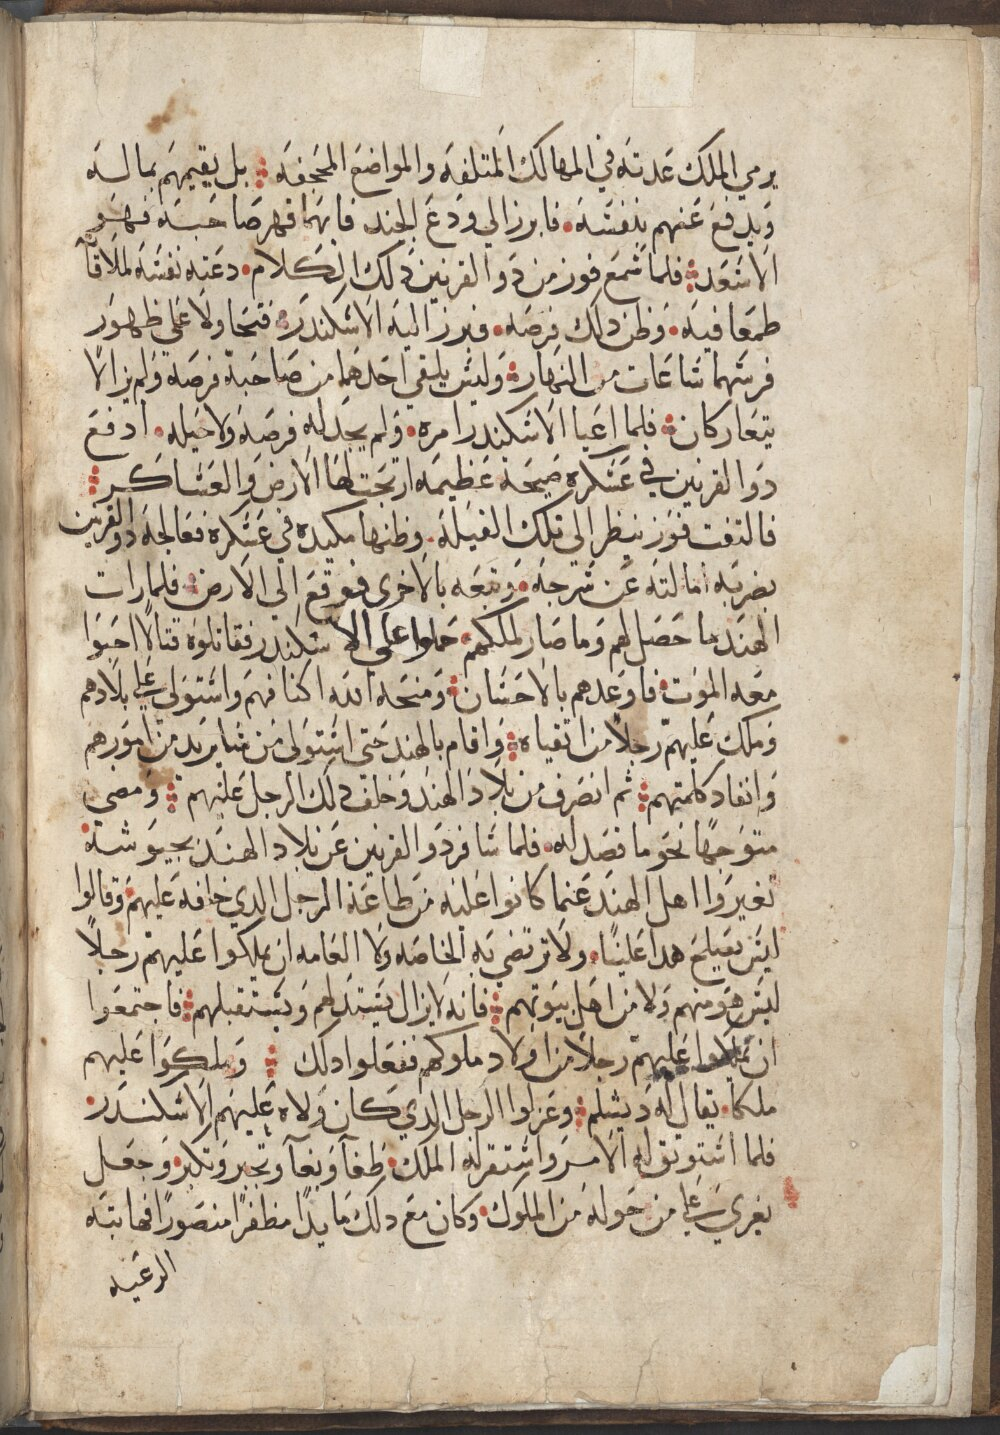 يرمي الملك عدته في المهالك المتلفه والمواضع المجحفه بل يقيهم بماله
ويدفع عنهم بنفسه فابرز الي ودع الجند فاينا قهر صاحبه فهو
الاسعد فلما سمع فوز من ذو القرنين ذلك الكلام دعته نفسه لملاقاة
طمعا فيه وظن ذلك فرصه فبرز اليه الاسكندر فتجاولا على ظهور
فرسهما ساعات من النهار وليس يلقي احدهما من صاحبه فرصه ولم يزالا
يتعاركان فلما اعيا الاسكندر امره ولم يجد له فرصه ولا حيله ادفع
ذو القرنين في عسكره صيحه عظيمه ارتجت لها الارض والعساكر
فالتفت فوز ينظر الى تلك الغيله وظنها مكيده في عسكره فعالجه ذو القرنين
بضربه امالته عن سرجه وتبعه بالاخرى فوقع الى الارض فلما رات
الهند ما حصل لهم وما صار لملكهم حملوا على الاسكندر فقاتلوه قتالا احبوا
معه الموت فاوعدهم بالاحسان ومنحه الله اكنافهم واستولى على بلادهم
وملك عليهم رجلا من اتقياه واقام بالهند حتى استولى من ما يريد من امورهم
وانقاد كلمتهم ثم انصرف من بلاد الهند وخلف ذلك الرجل عليهم ومضى
متوجها نحو ما قصد له فلما سافر ذو القرنين عن بلاد الهند بجيوشه
تغيروا اهل الهند عنما كانوا عليه من طاعة الرجل الدي خلفه عليهم وقالوا
ليس يصلح هدا علينا ولا ترتضي به الخاصه ولا العامه ان يملكوا عليهم رجلا
ليس هو منهم ولا من اهل بيوتهم فانه لا يزال يستدلهم ويستقبلهم فاجتمعوا
ان يملكوا عليهم رجلا من اولاد ملوكهم ففعلوا دلك وملكوا عليهم
ملكا يقال له ديشلم وعزلوا الرجل الدي كان ولاه عليهم الاسكندر
فلما استوتق له الامر واستقر له الملك طغا وبغا وتجبر وتكبر وجعل
يغري على من حوله من الملوك وكان مع دلك مايدا مظفرا منصورا فهابته
الرعيه